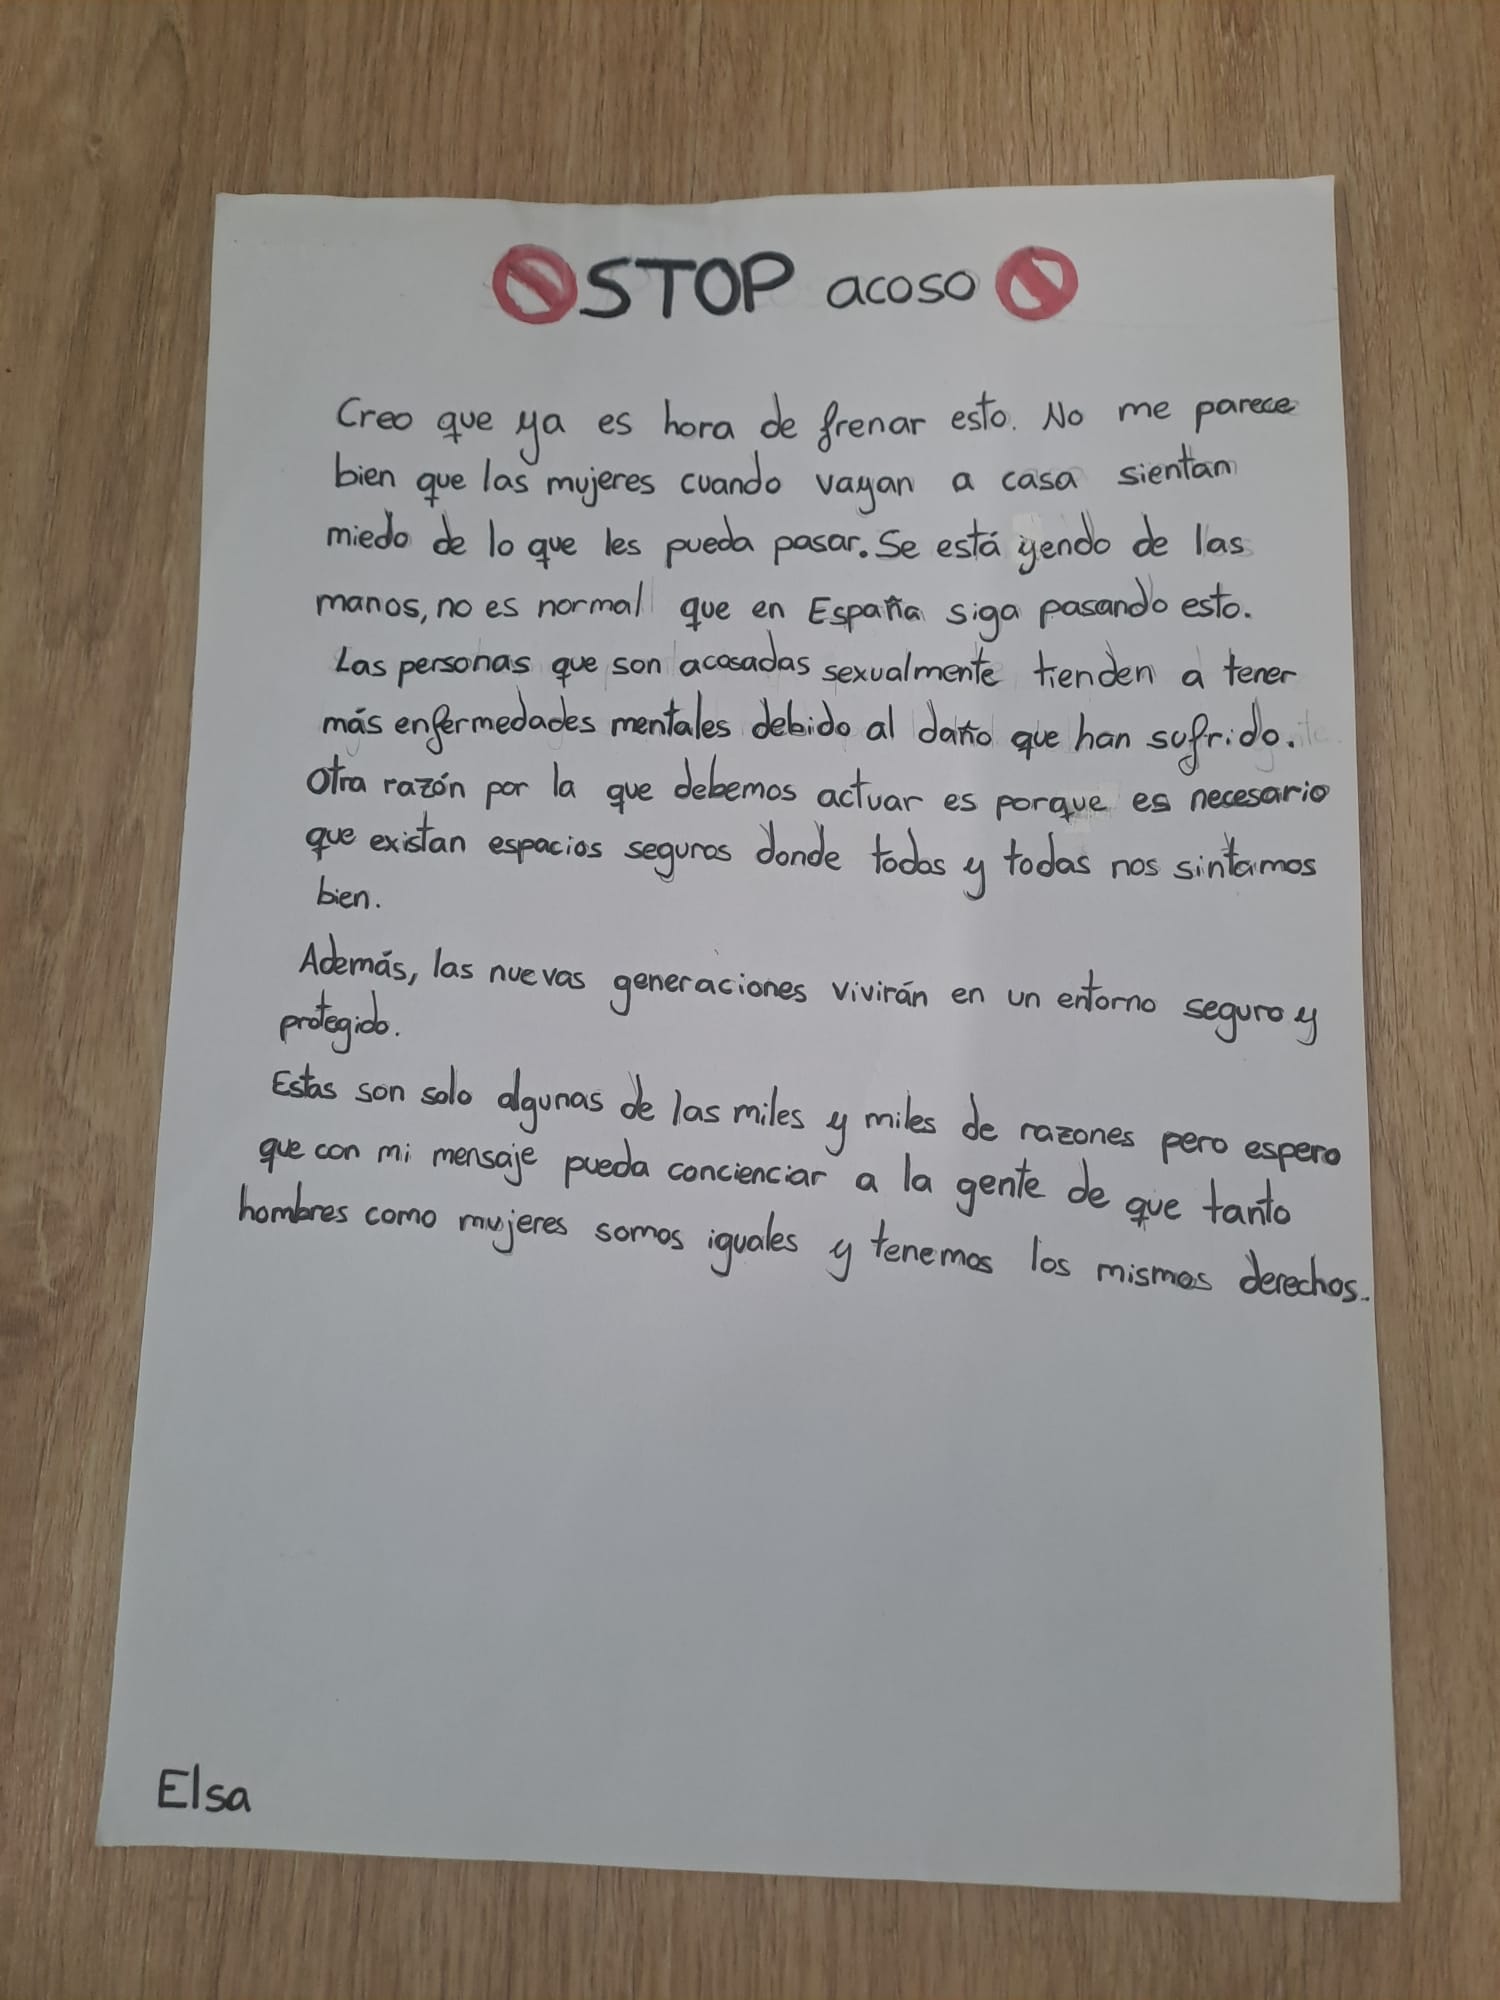 STOP acoso
Creo que ya es hora de frenar esto. No me parece
bien que las mujeres cuando vayan a casa sientan
miedo de lo que les pueda pasar. Se está yendo de las
manos, no es normal que en España siga pasando esto.
Las personas que son acosadas sexualmente tienden a tener
más enfermedades mentales debido al daño que han sufrido.
Otra razón por la que debemos actuar es porque es necesario
que existan espacios seguros donde todos y todas nos sintamos
bien.
Además, las nuevas generaciones vivirán en un entorno seguro y
protegido.
Estas son solo algunas de las miles y miles de razones pero espero
que con mi mensaje pueda concienciar a la gente de que tanto
hombres como mujeres somos iguales y tenemos los mismos derechos.
Elsa